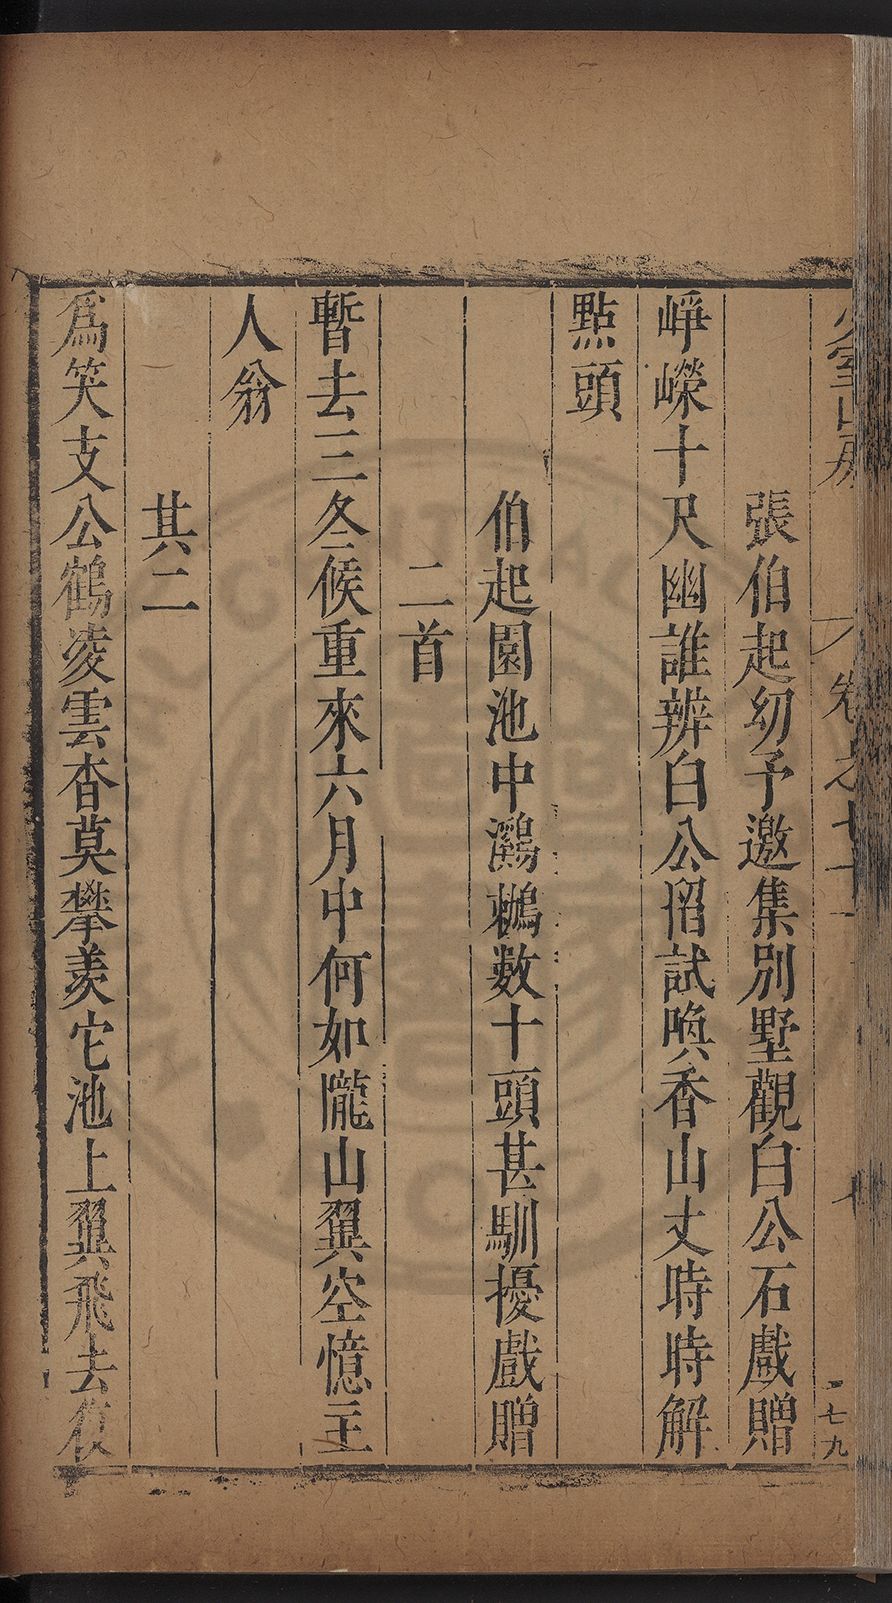 少室山房 卷之七十 二七九
張伯起幼予邀集別墅觀白公石戲贈
崢嶸十尺幽誰辨白公㽞試喚香山丈時時解
點頭
伯起園池中鸂鶒數十頭甚馴擾戲贈
二首
暫去三冬候重來六月中何如隴山翼空憶主
人翁
其二
爲笑支公鶴凌雲杳莫攀羨它池上翼飛去復